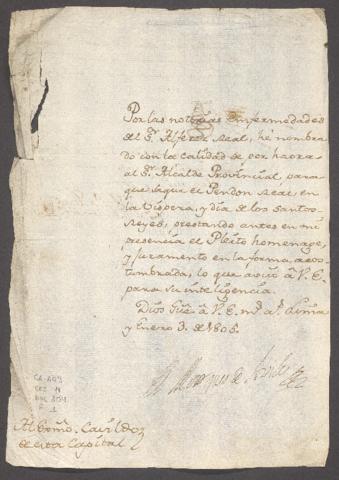 Por las notorias enfermedades
del Sr. Alferez Real, hé nombra
do con la calidad de por haora
al Sr. Alcalde Provincial, para
que saque el Pendon Real en
la Vispera, y dia de los santos
Reyes, prestando antes en mi
presencia el Pleito homenage,
y juramento en la forma acos-
tumbrada, lo que aviso â V.E.
para su inteligencia.
Dios Gue. â V.E. ms. as. Lima
y Enero 3. de 1806.
El Marques de Aviles
CA-
1
Al Exmo. Cavildo
de esta Capital